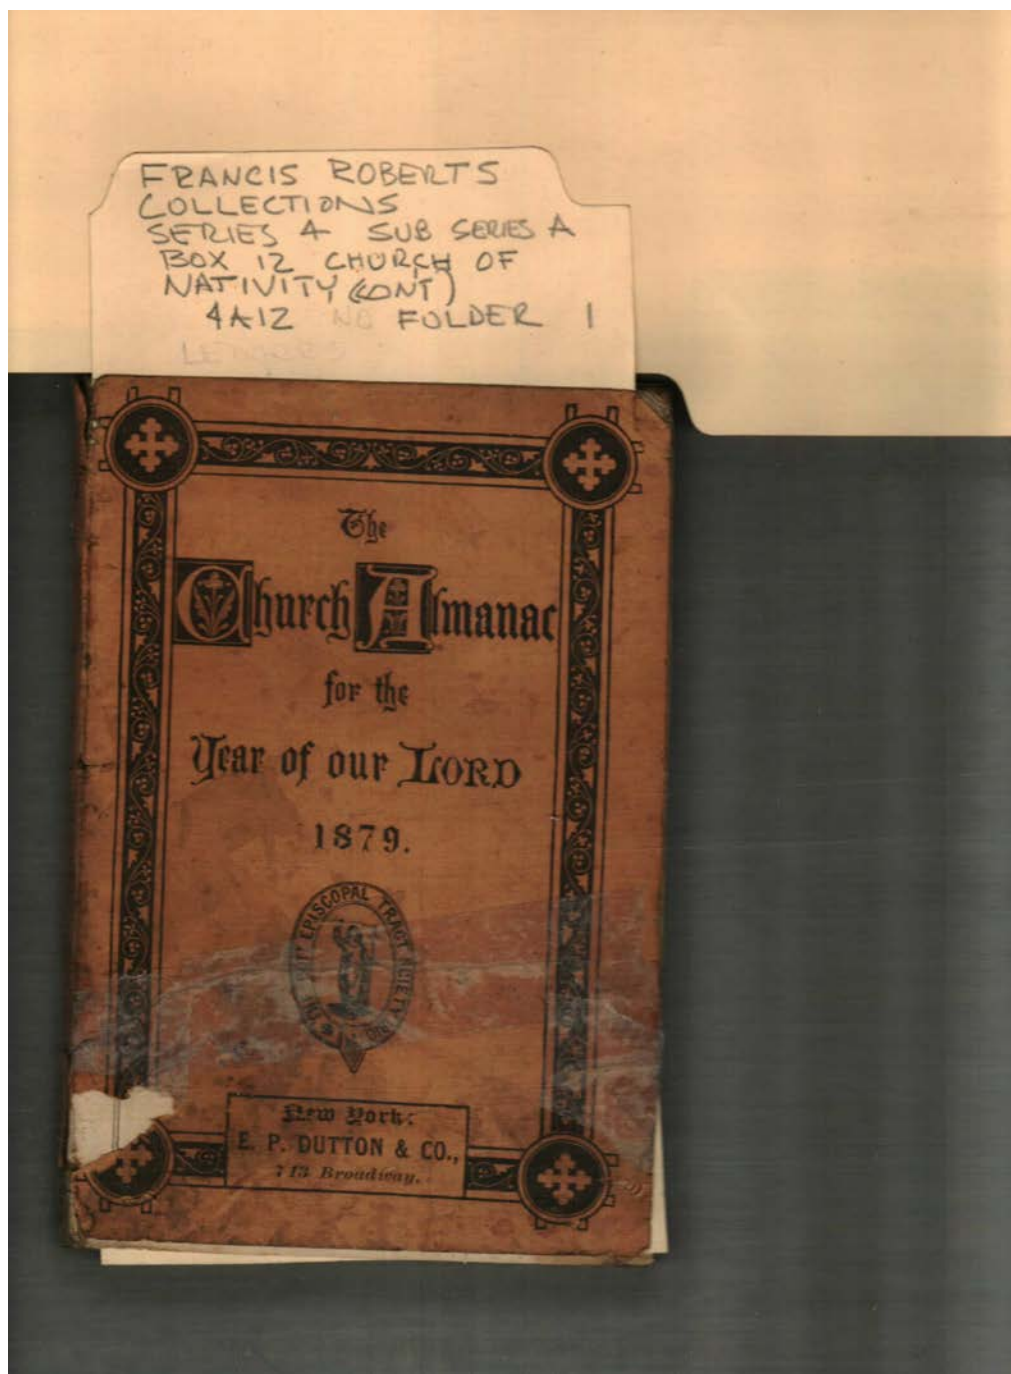 FRANCIS ROBERTS
COLLECTIONS
SERIES 4 SUB SERIES A
BOX 12 CHURCH OF
NATIVITY (CONT)
4A12 NO FOLDER 1
The
Church Almanac
for the
Year of our LORD
1879.
EPISCOPAL TRACT SOCIETY
New York:
E. P. DUTTON & CO.,
713 Broadway.